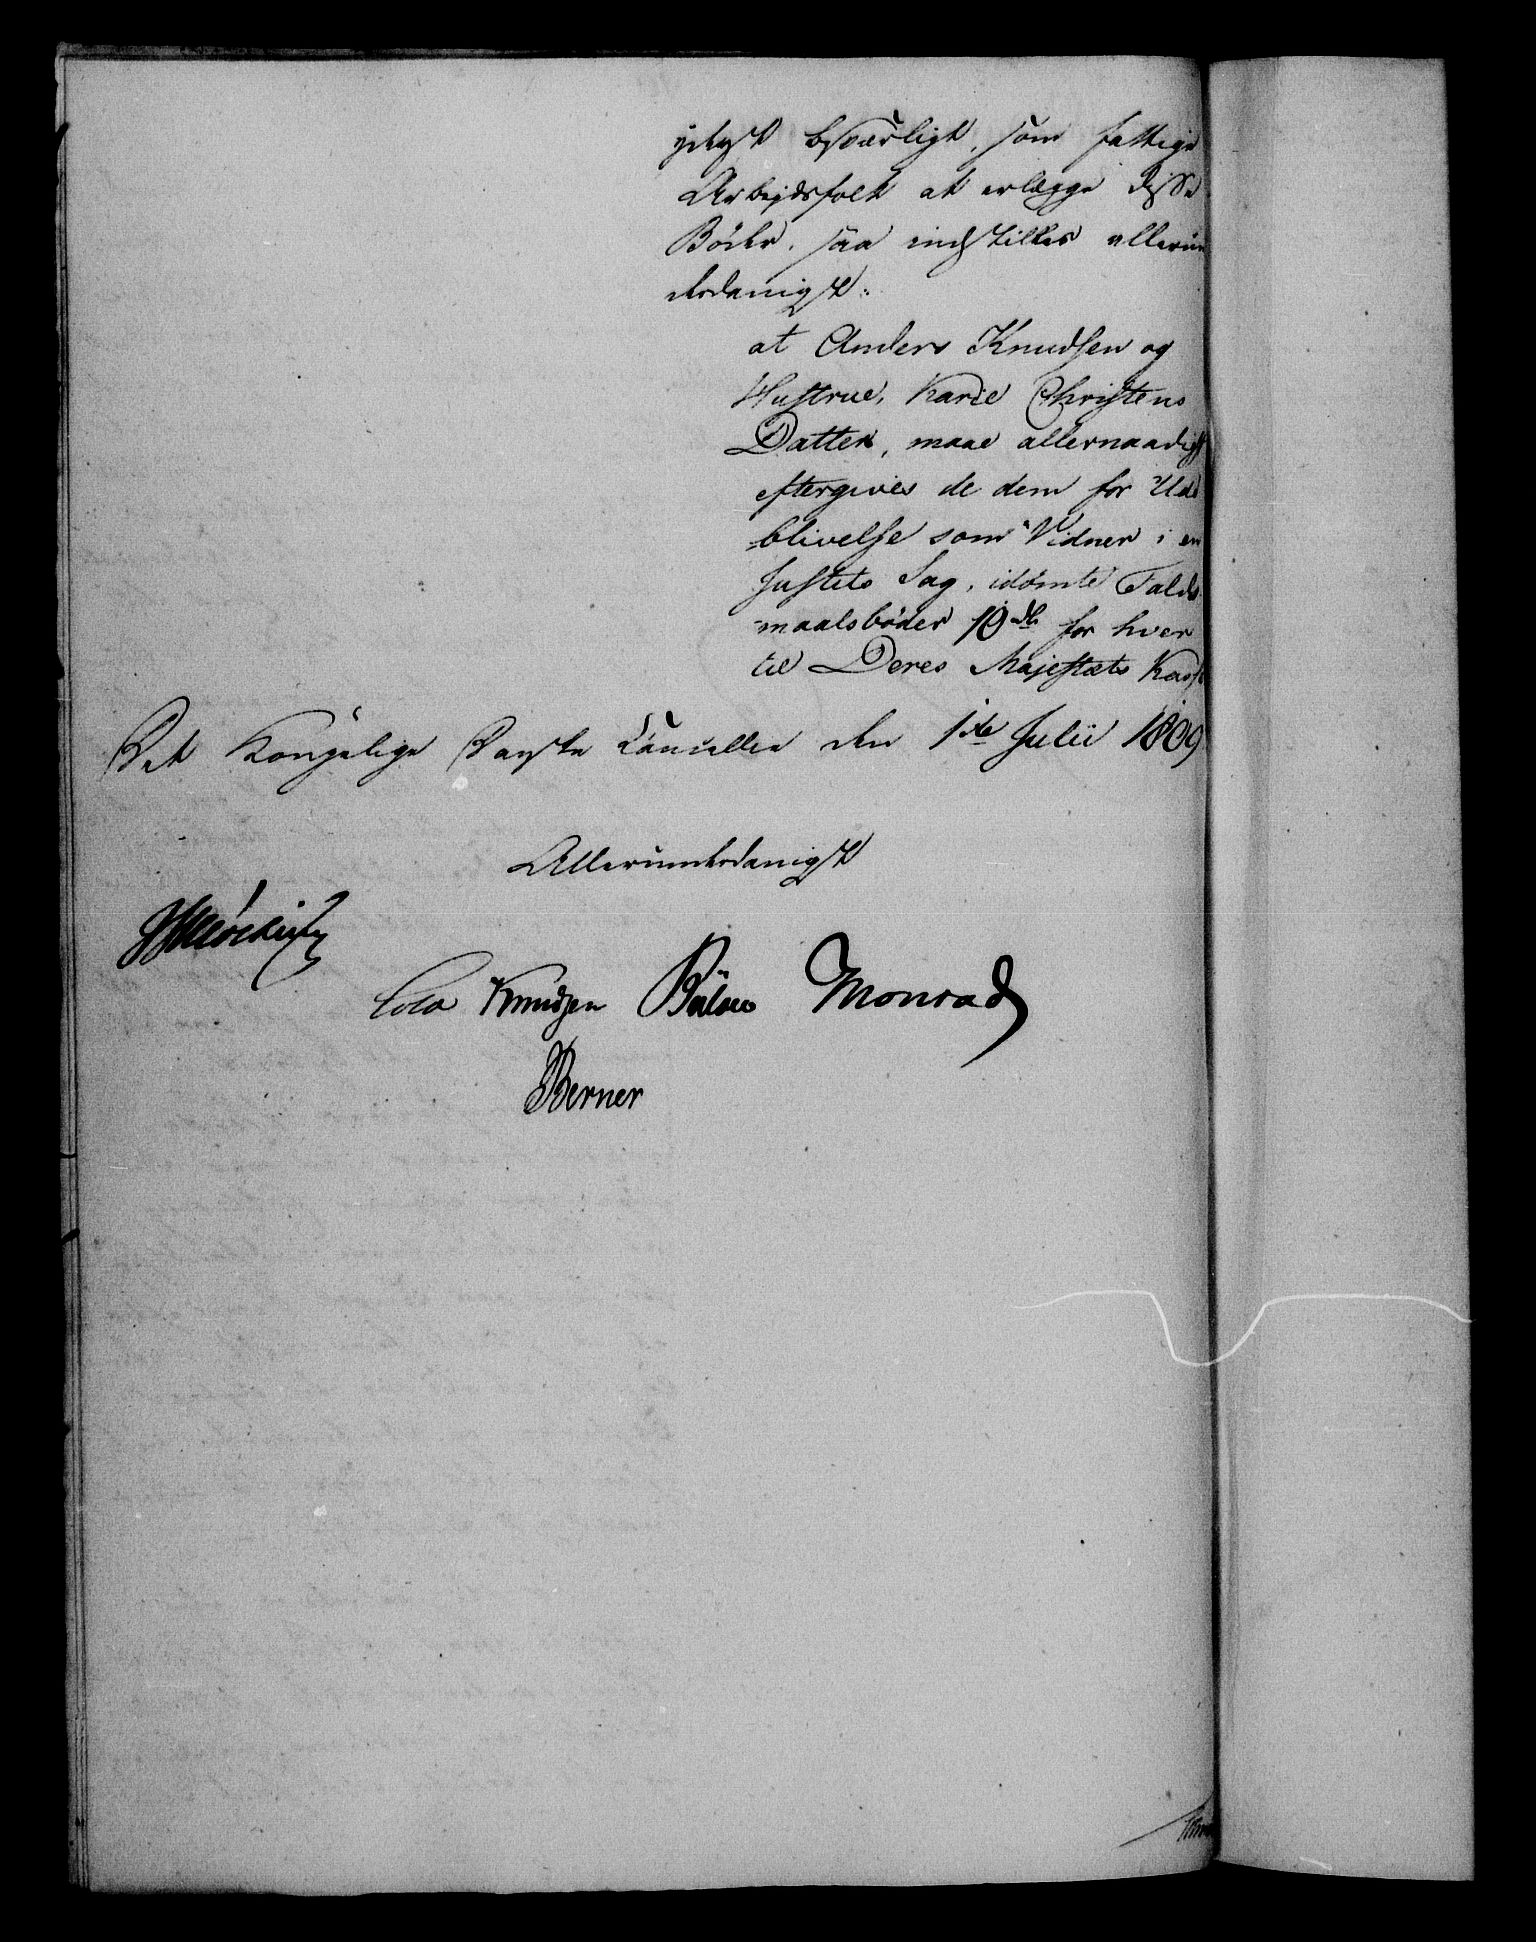 yderst besværligt, som fattige
Arbeydsfolk at erlægge disse
Bøder, saa indstilles allerun
derdanigst:
at Anders Knudsen og
Hustrue, Karie Christens
Datter, maae allernaadigst
eftergives de dem for Ude
blivelse som Vidner i en
Justits Sag, idømte Falds
maalsbøder 10 rd for hver
til Deres Majestæts Kasse
Det Kongelige Danske Cancellie den 1te Julii 1809
Allerunderdanigst
Cold Knudsen Bülow Monrad
Berner